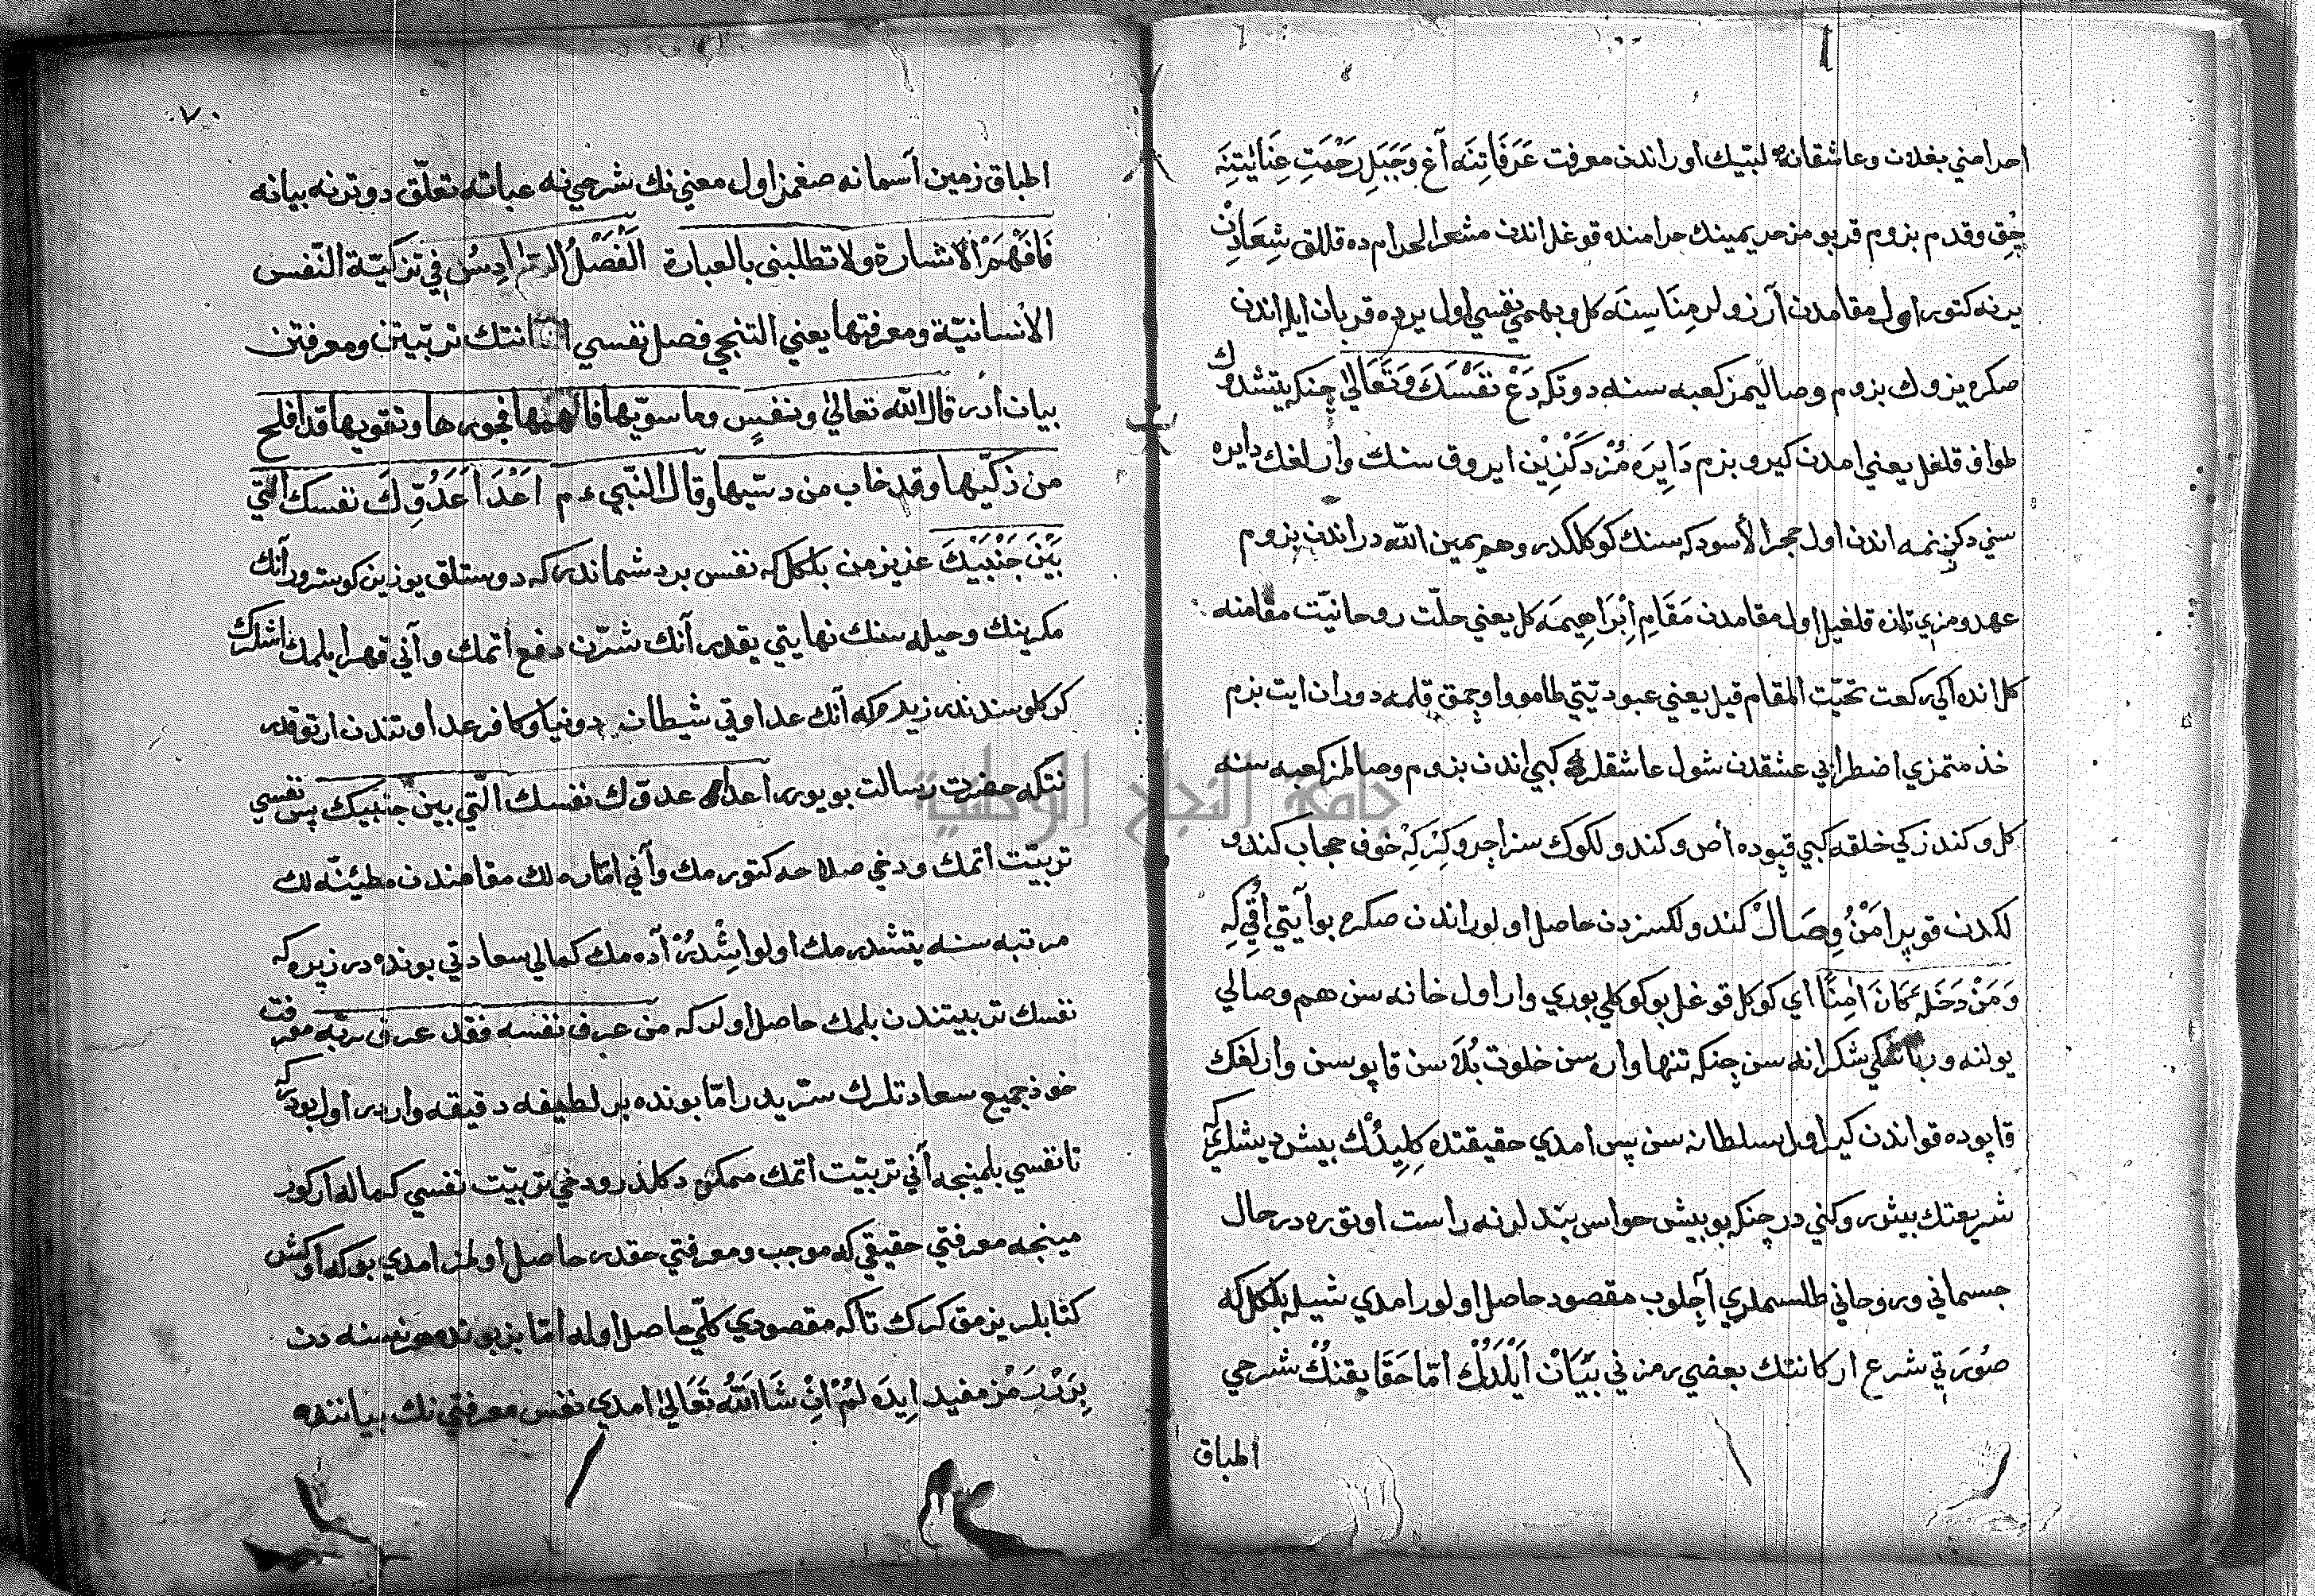 احرامني بغلان وعاشقانه لبيك اوراندن معرفت عَرَفَاتِنَه آغ وَجَبَلِ رَحْمَتِ عِنَايَتِنَه
چِق وقدم بزوم قربومز حريمينك حرامنده قوغل اندن مشعر الحرام ده قاللق شِعَارِنْ
يرنه كتور اول مقامدن آرزولر مِنَاسِنَه كل وبهيمي نفسي اول يرده قربان ايله اندن
صكره يزوك بزوم وصاليمز كعبه سنه دوتكه دَعْ نَفْسَكَ وَتَعَالَىٰ چنكه يتشدوك
طواف قلغل يعني امدن كيرو بزم دَايِرَه مُزْدَ كَزْيِنْ ايروق سنك وارلغك دايره
سني دكزينمه اندن اول حجر الأسود كه سنك كوكلكدر وهم يمين الله در اندن بزوم
عهدومزي تازه قلغيل اول مقامدن مَقَامِ اِبْرَاهِيمَه كل يعني حلّت روحانيّت مقامنه
كل انده ايكي ركعت تحيّت المقام قيل يعني عبوديّتي طامو واوچمق قلمه دوران ايت بزم
خذمتمزي اضطرابي عشقدن شول عاشقلر كبي اندن بزوم وصالمز كعبه سنه
كل وكندزكي خلقه كبي قپوده أص وكندولكوك سز اچرو كِرْ كِهْ خوف حجاب كندو
لكدن قوپر اَمْنُ وِصَالْ كندولكسزدن حاصل اولور اندن صكره بو آيتي اُقِي كِه
وَمَنْ دَخَلَهُ كَانَ اٰمِنًا اي كوكل قوغل بو كوكلي بوري وار اول خانه سن هم وصالي
يولنه وربانكي شكرانه سن چنكه تنها وار سن خلوت بُلَا سن قاپوسن وارلغك
قاپوده قو اندن كير اول سلطانه سن پس امدي حقيقتده كِلِيدُنْك بيش ديشلري كه
شريعتك بيش روكني در چنكه بو بيش حواس بند لرنه راست اوتوره در حال
جسماني وروحاني طلسملري آچلوب مقصود حاصل اولور امدي شيله بلكل كه
صُوَرَتي شرع اركاننك بعضي رمزني بَيَانْ اَيْلَدُكْ امّا حَقَايِقِنُكْ شرحي
اطباق
٧٠
اطباق زمين آسمانه صغمز اول معني نك شرحي نه عباته تعلّق دوترنه بيانه
فَافْهَمْ الاشارة ولا تطلبني بالعبارة الْفَصْلُ السَّادِسُ في تزكيّة النّفس
الأنسانيّة ومعرفتها يعني التنجي فصل نفسي انسانتك تربيّتن ومعرفتن
بيان ادر قال الله تعالى ونفسٍ وما سوّيها فالهمها فجورها وتقويها قد افلح
من زكّيها وقد خاب من دسّيها وقال النّبي ءم اَعْدَا اَعَدُوِّكَ نفسك الّتي
بَيْنَ جَنْبَيْكَ عزيز من بلكل كه نفس بر دشماندر كه دوستلق يوزين كوسترور آنك
مكرينك وحيله سنك نهايتي يقدر آنك شرّن دفع أتمك وآني قهر ايلمك اشلرك
كركلوسندندر زيره كه آنك عداوتي شيطان دونيا وكافر عداوتندن ارتوقدر
نتكه حضرت رسالت بويورر اعدا عدوّك نفسك الّتي بين جنبيك پس نفسي
تربيّت أتمك ودخي صلاحه كتورمك وآني امّاره لك مقامندن مطئنّه لك
مرتبه سنه يتشدرمك اولو ايشْدُرْ آده مك كمالي سعادتي بونده در زيره كه
نفسك تربيتندن بلمك حاصل اولر كه من عرف نفسه فقد عرف ربّه معرفت
خوذ جميع سعادتلرك سرّيدر امّا بونده بر لطيفه دقيقه واردر اول بودر كه
تا نفسي بلمينجه آني تربيّت أتمك ممكن دكلدر ودخي تربيّت نفسي كماله اركور
مينجه معرفتي حقيقي كه موجب ومعرفتي حقدر حاصل اولمز امدي بوكه اوكش
كتابلر يزمق كرك تا كه مقصودي كلّي حاصل اوله امّا بز بونده هر نسنه دن
بِرَرْ رَمْز مفيد اِيدَه لُمْ اِنْ شَا اللّٰهُ تَعَالَىٰ امدي نفس معرفتي نك بياننده